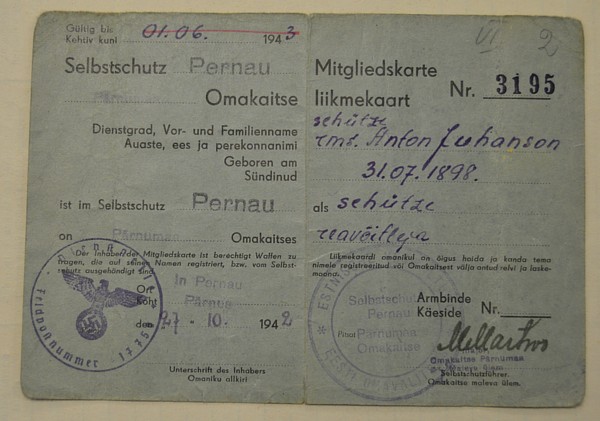 Gültig bis
Kehtiv kuni 01.06. 1943
Selbstschutz Pernau
Pärnumaa Omakaitse
Dienstgrad, Vor- und Familienname
Auaste, ees ja perekonnanimi
Geboren am
Sündinud
ist im Selbstschutz Pernau
on Pärnumaa Omakaitses
Der Inhaber der Mitgliedskarte ist berechtigt Waffen zu
tragen, die auf seinen Namen registriert, bzw. vom Selbst-
schutz ausgehändigt sind.
Ort
Koht In Pernau
Pärnus
den 27 - 10. 1942
Dienststelle
Feldpostnummer
Unterschrift des Inhabers
Omaniku allkiri
VI 2
Mitgliedskarte
liikmekaart Nr. 3195
schütze
rms. Anton Juhanson
31.07.1898.
als schütze
Liikmekaardi omanikul on õigus hoida ja kanda tema
nimele registreeritud või Omakaitsest välja antud relvi ja laske-
moona.
Selbstschutz
Pernau
Pärnumaa
Omakaitse
Armbinde
Käeside Nr.
Pitsat
Omakaitse Pärnumaa
Selbstschutzführer.
Omakaitse maleva ülem.